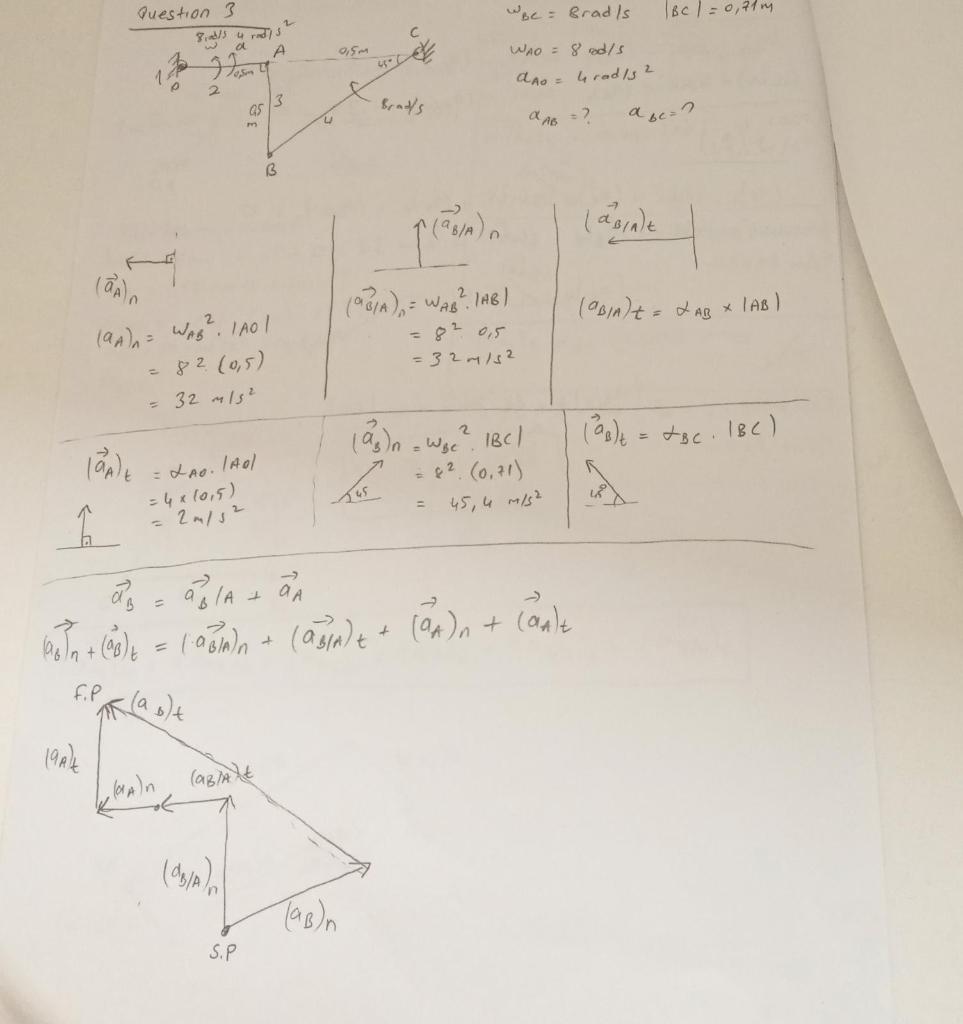 Question 3
8rad/s 4 rad/s²
w α A 0,5m C
1 0 0,5m 45°
2
0,5 3
m
4 8rad/s
B
w_BC = 8rad/s |BC| = 0,71m
w_AO = 8 rad/s
α_AO = 4 rad/s²
α_AB = ? α_BC = ?
(a⃗_A)n
(a_A)n = w_AB². |AO|
= 8². (0,5)
= 32 m/s²
(a⃗_B/A)n
(a⃗_B/A)n = w_AB². |AB|
= 8². 0,5
= 32 m/s²
(a⃗_B/A)t
(a_B/A)t = α_AB x |AB|
(a⃗_A)t = α_AO. |AO|
= 4 x (0,5)
= 2 m/s²
(a⃗_B)n = w_BC². |BC|
= 8². (0,71)
45 = 45,4 m/s²
(a⃗_B)t = α_BC. |BC|
45°
a⃗_B = a⃗_B/A + a⃗_A
(a⃗_B)n + (a⃗_B)t = (a⃗_B/A)n + (a⃗_B/A)t + (a⃗_A)n + (a⃗_A)t
F.P (a_B)t
(a_A)t
(a_A)n (a_B/A)t
(a_B/A)n
(a_B)n
S.P